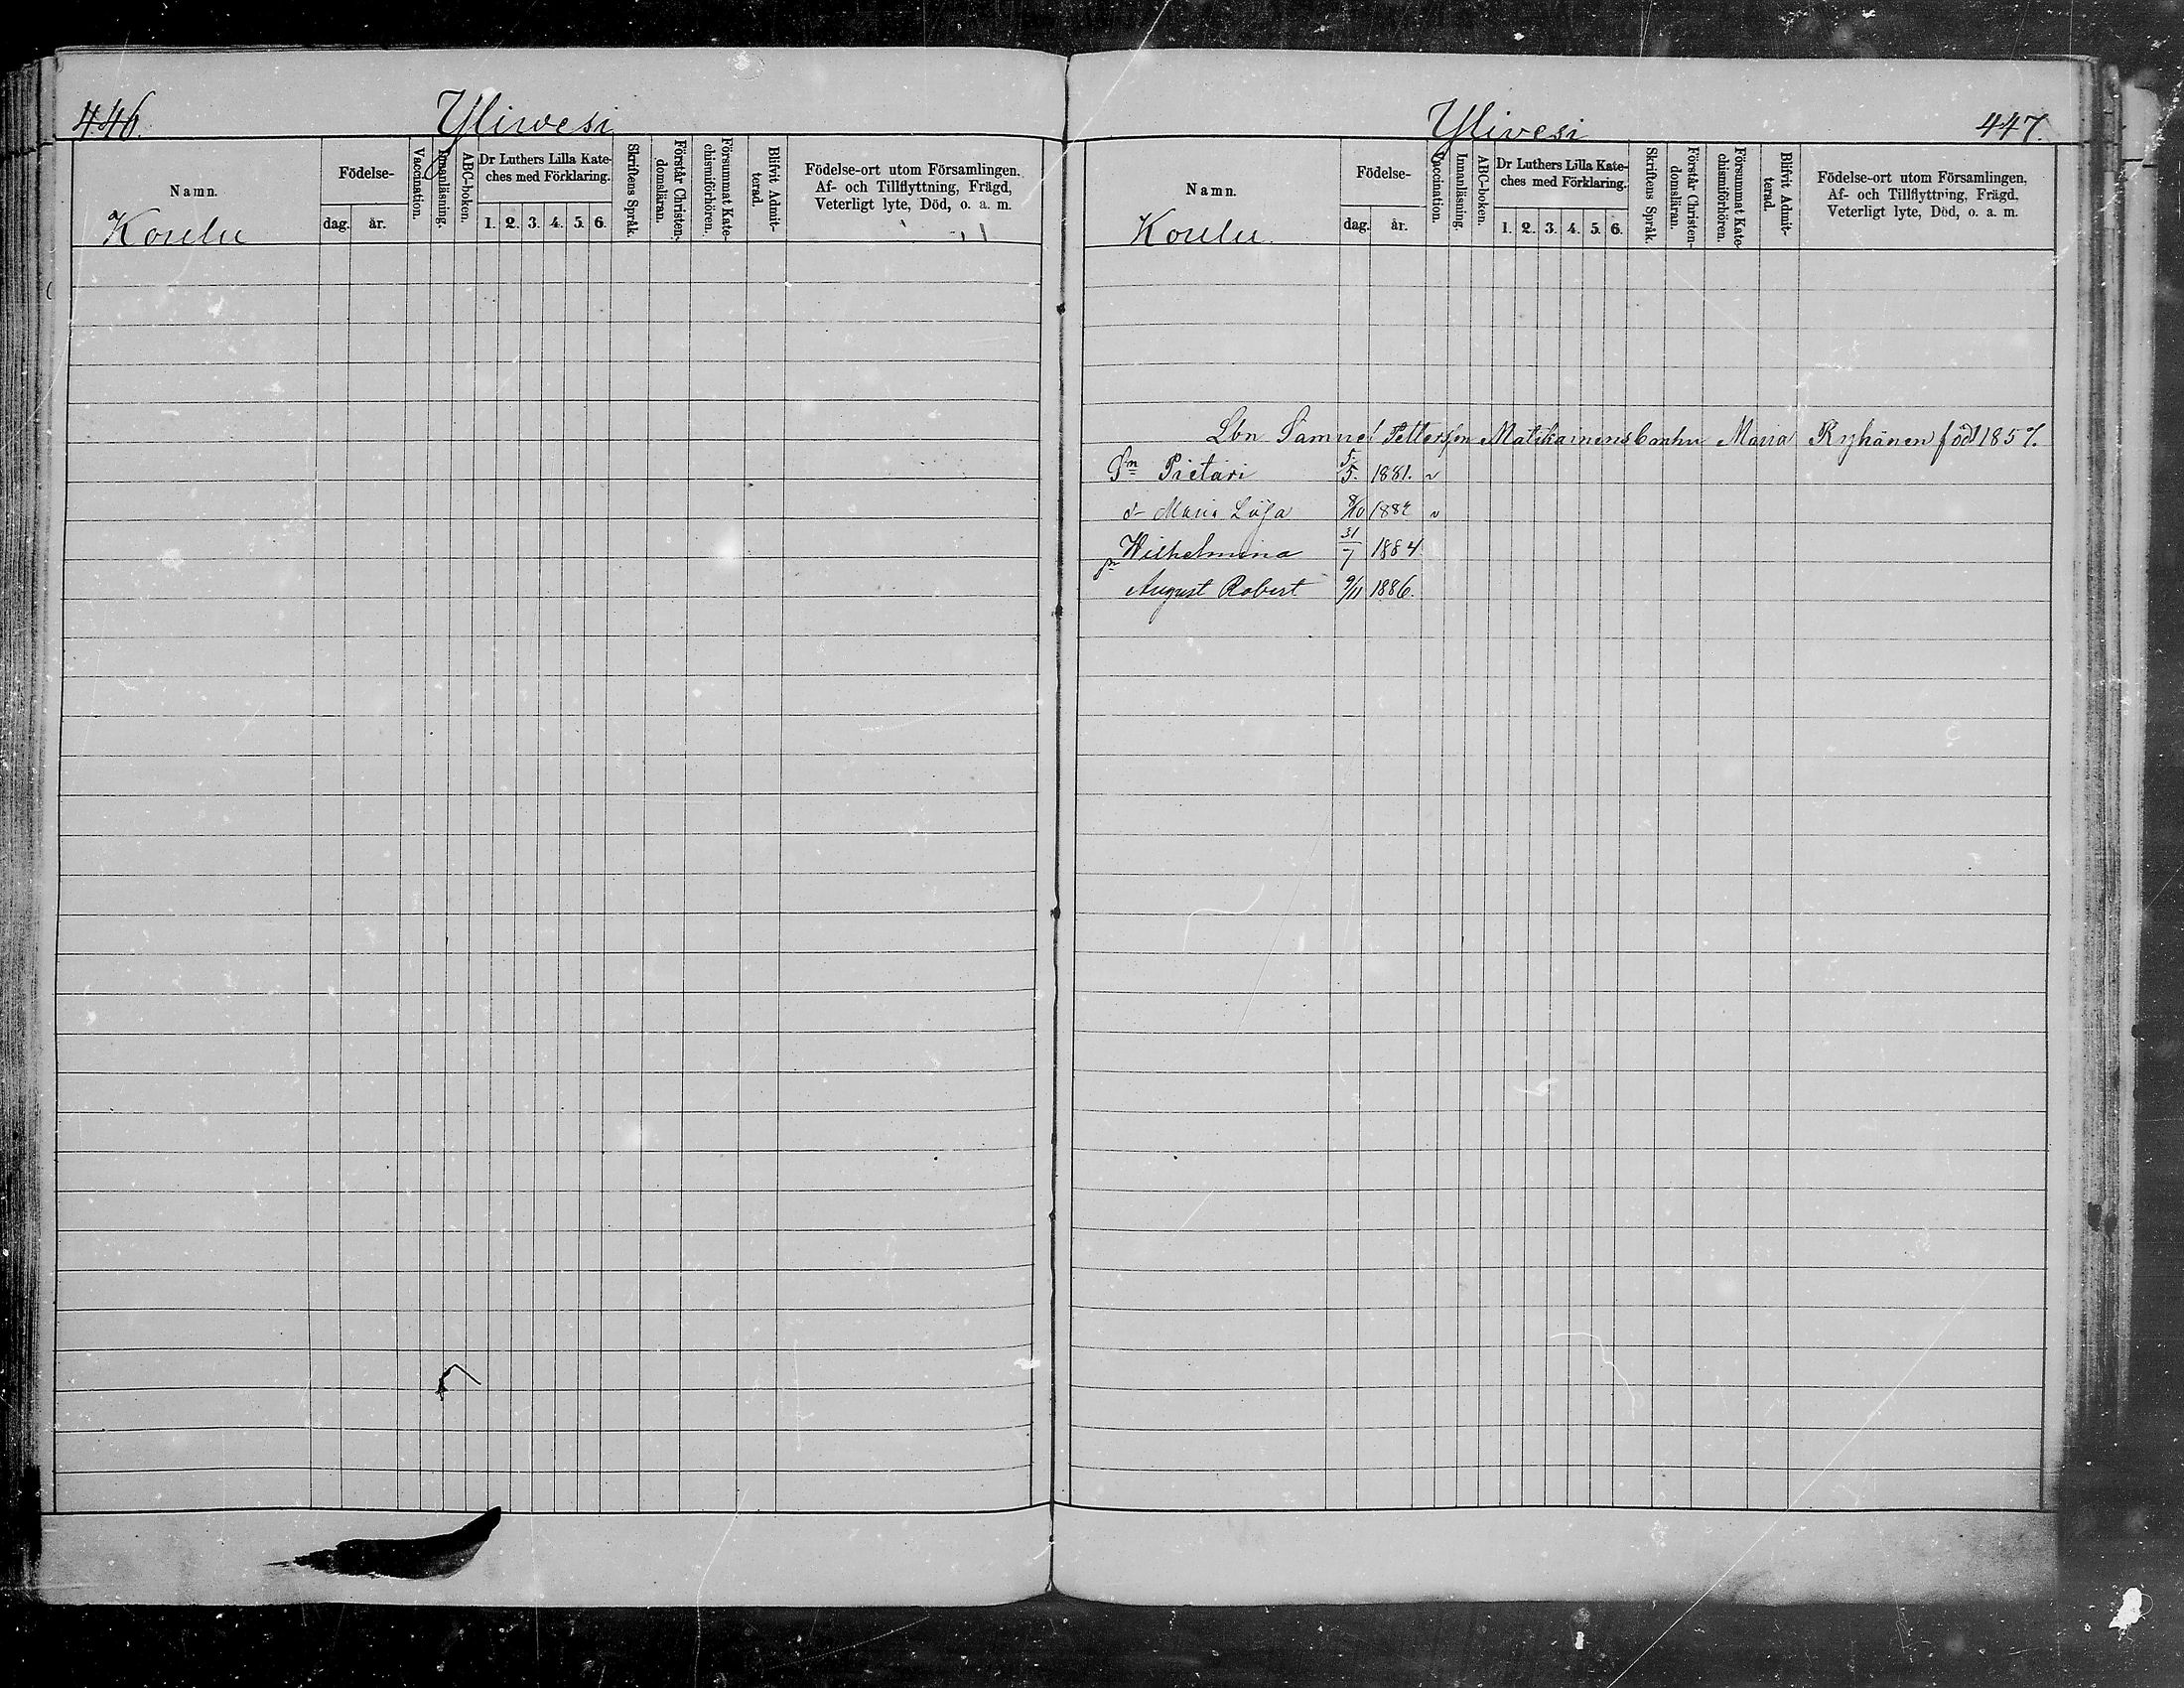 446.
Yliwesi
Namn.
Födelse-
dag. år.
Vaccination.
Innanläsning.
ABC-boken.
Dr Luthers Lilla Kate-
ches med Förklaring.
1. 2. 3. 4. 5. 6.
Skriftens Språk.
Förstår Christen-
domsläran.
Försummat Kate-
chismiförhören.
Blifvit Admit-
terad.
Födelse-ort utom Församlingen.
Af- och Tillflyttning, Frägd,
Veterligt lyte, Död, o. a. m.
Koulu
Ylivesi
447.
Namn.
Födelse-
dag. år.
Vaccination.
Innanläsning.
ABC-boken.
Dr Luthers Lilla Kate-
ches med Förklaring.
1. 2. 3. 4. 5. 6.
Skriftens Språk.
Förstår Christen-
domsläran.
Försummat Kate-
chismiförhören.
Blifvit Admit-
terad.
Födelse-ort utom Församlingen,
Af- och Tillflyttning, Frägd,
Veterligt lyte, Död, o. a. m.
Koulu.
Lbn Samuel Petterson Matikainens Maria Ryhänen född
Sn Pietari 5/5. 1881. v
d- Maria Liisa 8/10 v
Wilhelmina 31/7 1884
sn August Robert 9/11 1886.